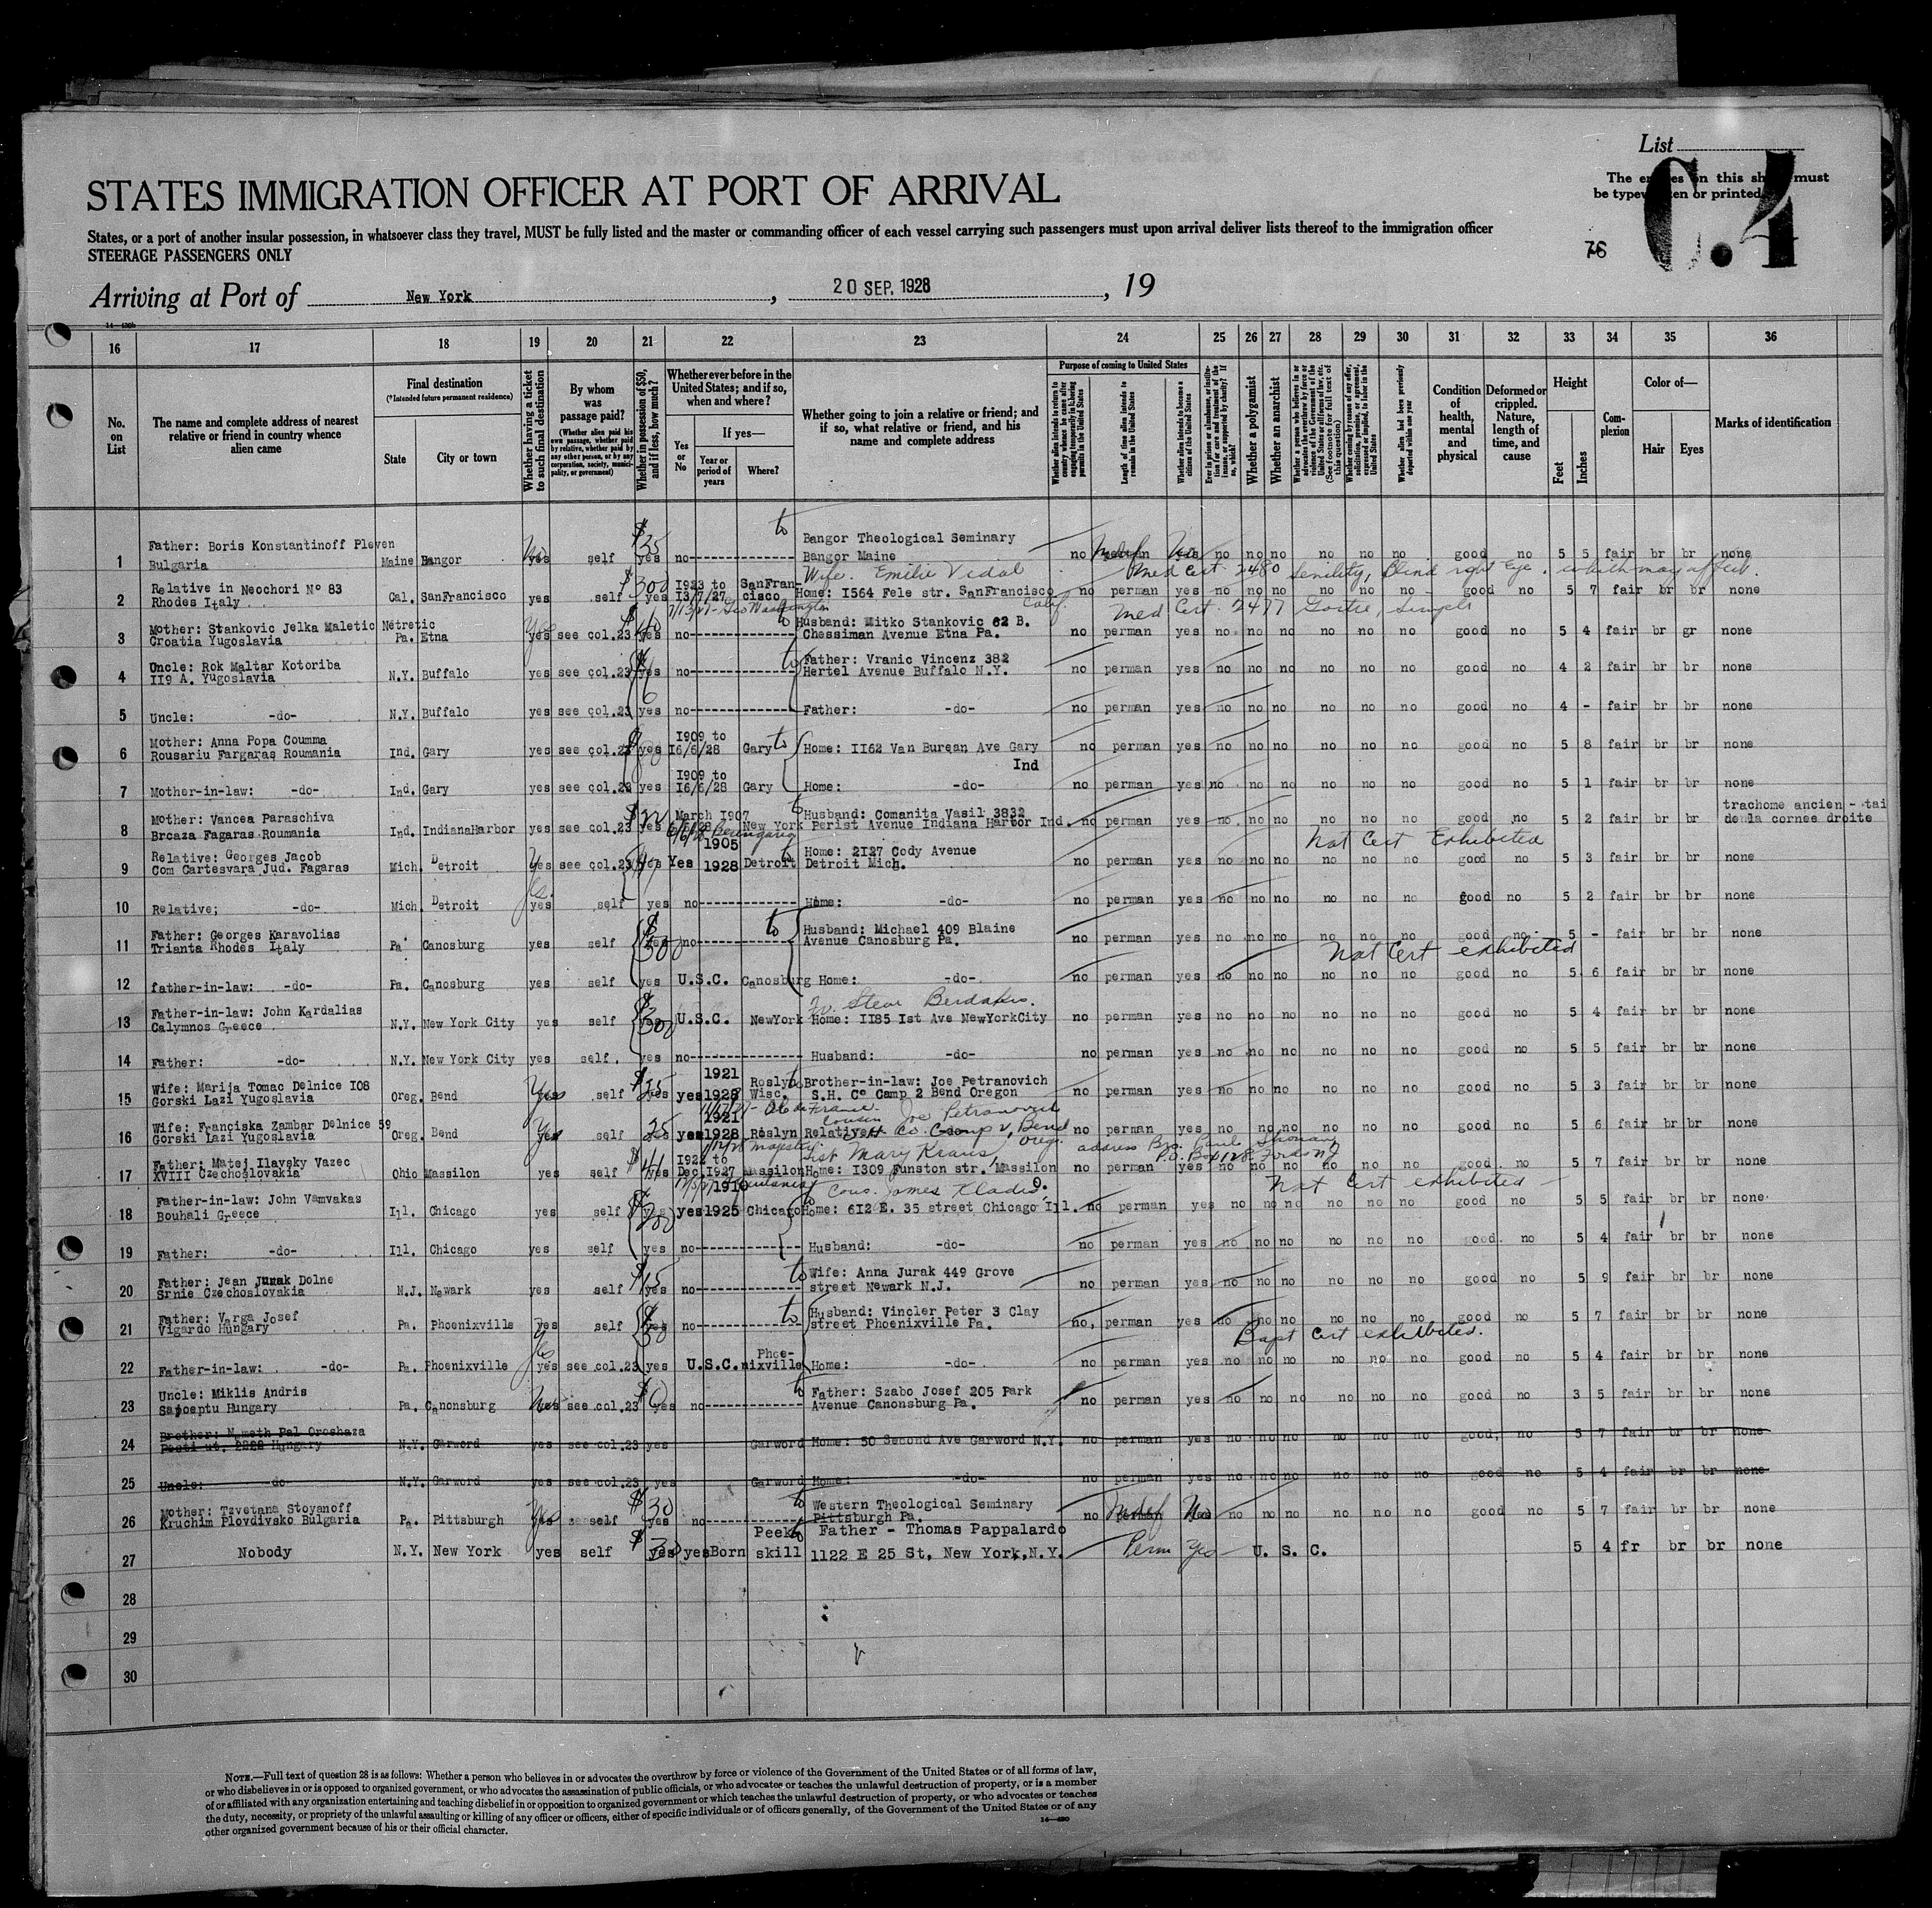 List
The entries on this sheet must
be typewritten or printed
C.4
76
STATES IMMIGRATION OFFICER AT PORT OF ARRIVAL
States, or a port of another insular possession, in whatsoever class they travel, MUST be fully listed and the master or commanding officer of each vessel carrying such passengers must upon arrival deliver lists thereof to the immigration officer
STEERAGE PASSENGERS ONLY
Arriving at Port of New York, 20 SEP. 1928, 19
16 17 18 19 20 21 22 23 24 25 26 27 28 29 30 31 32 33 34 35 36
No. on List
The name and complete address of nearest relative or friend in country whence alien came
Final destination
(Intended future permanent residence)
State
City or town
Whether having a ticket to such final destination
By whom was passage paid?
(Whether alien paid his own passage, whether paid by relative, whether paid by any other person, or by any corporation, society, municipality, or government)
Whether in possession of $50, and if less, how much?
Whether ever before in the United States; and if so, when and where?
Yes or No
If yes—
Year or period of years
Where?
Whether going to join a relative or friend; and if so, what relative or friend, and his name and complete address
Purpose of coming to United States
Length of time alien intends to remain in the United States
Whether alien intends to become a citizen of the United States
Whether a polygamist
Whether an anarchist
Whether alien had been previously deported within one year
Condition of health, mental and physical
Deformed or crippled. Nature, length of time, and cause
Height
Feet
Inches
Complexion
Color of—
Hair
Eyes
Marks of identification
1 Father: Boris Konstantinoff Pleven Bulgaria Maine Bangor No yes self $35 yes no to Bangor Theological Seminary Bangor Maine no Indef perman No yes no no no no no no good no 5 5 fair br br none
Wife. Emilie Vidal Med Cert. 2480 Senility, Blind right Eye. which may affect.
2 Relative in Neochori Nº 83 Rhodes Italy Cal. SanFrancisco yes self $300 yes I923 to I3/7/27 SanFrancisco Home: I564 Fele str. SanFrancisco Calif. no perman yes no no no no no no good no 5 7 fair br br none
7/13/27 - Geo Washington Med Cert. 2477 Goitre, Simple
3 Mother: Stankovic Jelka Maletic Nétretic Croatia Yugoslavia Pa. Etna yes see col.23 yes no to Husband: Mitko Stankovic 62 B. Chessiman Avenue Etna Pa. no perman yes no no no no no no good no 5 4 fair br gr none
4 Uncle: Rok Maltar Kotoriba II9 A. Yugoslavia N.Y. Buffalo yes see col.23 yes no to Father: Vranic Vincenz 382 Hertel Avenue Buffalo N.Y. no perman yes no no no no no no good no 4 2 fair br br none
5 Uncle: -do- N.Y. Buffalo yes see col.23 yes no Father: -do- no perman yes no no no no no no good no 4 - fair br br none
6 Mother: Anna Popa Coumma Rousariu Fargaras Roumania Ind. Gary yes see col.23 yes I909 to I6/6/28 Gary to Home: II62 Van Burean Ave Gary Ind no perman yes no no no no no no good no 5 8 fair br br none
7 Mother-in-law: -do- Ind. Gary yes see col.23 yes I909 to I6/6/28 Gary Home: -do- no perman yes no no no no no no good no 5 1 fair br br none
8 Mother: Vancea Paraschiva Brcaza Fagaras Roumania Ind. IndianaHarbor yes see col.23 yes March I907 New York Husband: Comanita Vasil 3832 Perist Avenue Indiana Harbor Ind. no perman yes no no no no no no good no 5 2 fair br br trachome ancien - tai de la cornee droite
6/6/28 Berengaria Nat Cert Exhibited
9 Relative: Georges Jacob Com Cartesvara Jud. Fagaras Mich. Detroit yes see col.23 yes Yes 1905 1928 Detroit to Home: 2I27 Cody Avenue Detroit Mich. no perman yes no no no no no no good no 5 3 fair br br none
10 Relative; -do- Mich. Detroit yes self yes no Home: -do- no perman yes no no no no no no good no 5 2 fair br br none
11 Father: Georges Karavolias Trianta Rhodes Italy Pa. Canosburg yes self $300 yes no to Husband: Michael 409 Blaine Avenue Canosburg Pa. no perman yes no no no no no no good no 5 - fair br br none
Nat Cert exhibited
12 father-in-law: -do- Pa. Canosburg yes self yes U.S.C. Canosburg Home: -do- no perman yes no no no no no no good no 5 6 fair br br none
13 Father-in-law: John Kardalias Calymnos Greece N.Y. New York City yes self $300 yes U.S.C. NewYork Home: II85 Ist Ave NewYorkCity no perman yes no no no no no no good no 5 4 fair br br none
14 Father: -do- N.Y. New York City yes self. yes no Husband: -do- no perman yes no no no no no no good no 5 5 fair br br none
15 Wife: Marija Tomac Delnice I08 Gorski Lazi Yugoslavia Oreg. Bend Yes self $25 yes yes 1921 1928 Roslyn Wisc. to Brother-in-law: Joe Petranovich S.H. Cº Camp 2 Bend Oregon no perman yes no no no no no no good no 5 3 fair br br none
Cousin Joe Petranovich
16 Wife: Franciska Zambar Delnice 59 Gorski Lazi Yugoslavia Oreg. Bend Yes self 25 yes yes 1921 1928 Roslyn Relative: Co. Camp 2, Bend Oreg. no perman yes no no no no no no good no 5 6 fair br br none
Majestic Sist Mary Kraus, address Bro. Paul P.O. Box 128
17 Father: Matej Ilavsky Vazec XVIII Czechoslovakia Ohio Massilon yes self yes I922 to Dec. I927 Massilon Home: I309 Funston str. Massilon O. no perman yes no no no no no no good no 5 7 fair br br none
Cous. James Kladis Nat Cert exhibited
18 Father-in-law: John Vamvakas Bouhali Greece Ill. Chicago yes self $200 yes yes 1910 1925 Chicago to Home: 6I2 E. 35 street Chicago Ill. no perman yes no no no no no no good no 5 5 fair br br none
19 Father: -do- Ill. Chicago yes self yes no Husband: -do- no perman yes no no no no no no good no 5 4 fair br br none
20 Father: Jean Jurak Dolne Srnie Czechoslovakia N.J. Newark yes self $15 yes no to Wife: Anna Jurak 449 Grove street Newark N.J. no perman yes no no no no no no good no 5 9 fair br br none
21 Father: Varga Josef Vigardo Hungary Pa. Phoenixville yes self $30 yes no to Husband: Vincler Peter 3 Clay street Phoenixville Pa. no perman yes no no no no no no good no 5 7 fair br br none
Bapt Cert exhibited.
22 Father-in-law: -do- Pa. Phoenixville yes see col.23 yes U.S.C. Phoenixville Home: -do- no perman yes no no no no no no good no 5 4 fair br br none
23 Uncle: Miklis Andris Sapoeptu Hungary Pa. Canonsburg yes see col.23 yes no to Father: Szabo Josef 205 Park Avenue Canonsburg Pa. no perman yes no no no no no no good no 3 5 fair br br none
24 Brother: Nemeth Pal Oroshaza Pesti ut. 2222 Hungary N.Y. Garword yes see col.23 yes Garword Home: 50 Second Ave Garword N.Y. no perman yes no no no no no no good, no 5 7 fair br br none
25 Uncle: -do- N.Y. Garword yes see col.23 yes Garword Home: -do- no perman yes no no no no no no good no 5 4 fair br br none
26 Mother: Tzvetana Stoyanoff Kruchim Plovdivsko Bulgaria Pa. Pittsburgh Yes self $30 yes no to Western Theological Seminary Pittsburgh Pa. no Indef perman No no no no no no no good no 5 7 fair br br none
27 Nobody N.Y. New York yes self $30 yes yes Born Peekskill to Father - Thomas Pappalardo 1122 E 25 St, New York, N.Y. Perm Yes U. S. C. 5 4 fr br br none
28
29
30
NOTE.—Full text of question 28 is as follows: Whether a person who believes in or advocates the overthrow by force or violence of the Government of the United States or of all forms of law,
or who disbelieves in or is opposed to organized government, or who advocates the assassination of public officials, or who advocates or teaches the unlawful destruction of property, or is a member
of or affiliated with any organization entertaining and teaching disbelief in or opposition to organized government or which teaches the unlawful destruction of property, or who advocates or teaches
the duty, necessity, or propriety of the unlawful assaulting or killing of any officer or officers, either of specific individuals or of officers generally, of the Government of the United States or of any
other organized government because of his or their official character.